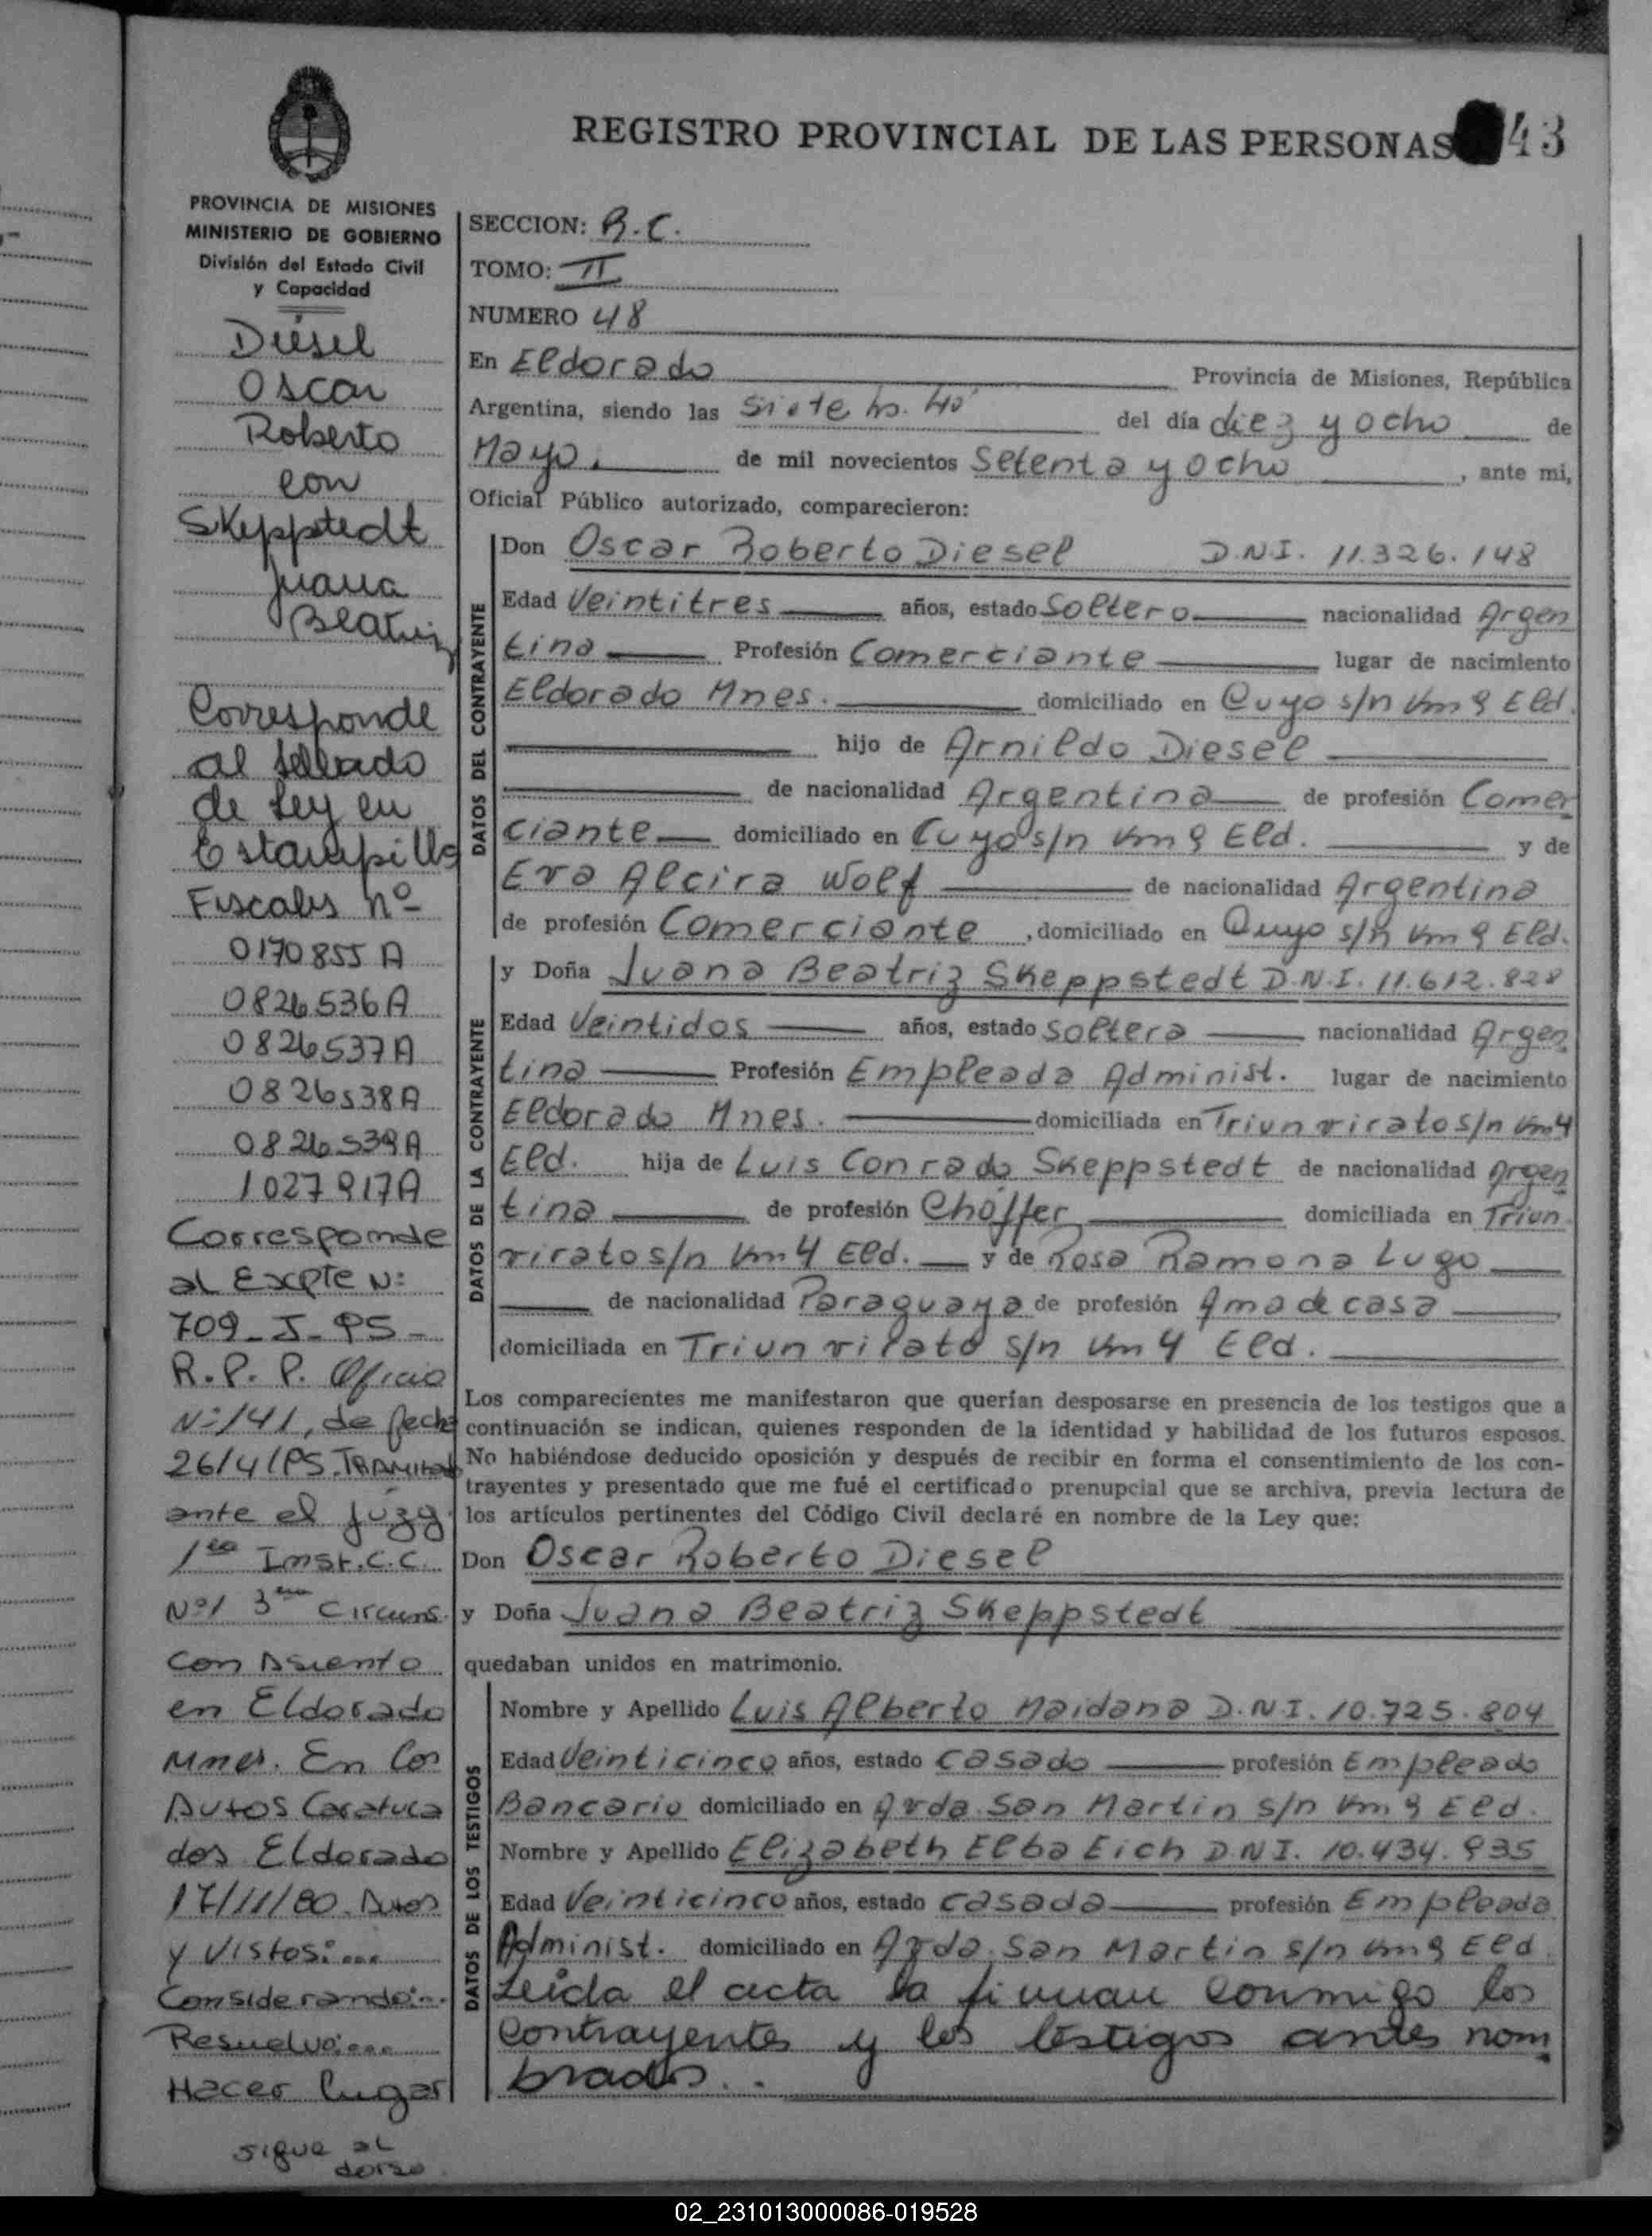 REGISTRO PROVINCIAL DE LAS PERSONAS 43
PROVINCIA DE MISIONES
MINISTERIO DE GOBIERNO
División del Estado Civil
y Capacidad
Diesel
Oscar
Roberto
con
Skeppstedt
Juana
Beatriz
Corresponde
al sellado
de Ley en
Estampilla
Fiscales nº
0170855 A
0826536A
0826537A
0826538A
0826539A
1027917A
Corresponde
al Expte N:
709-J-95-
R.P.P. Oficio
Nº141, de fecha
26/4/95. Tramitad
ante el juzg.
1ra Inst. C.C.
Nº1 3ra Circuns.
con Asiento
en Eldorado
Mnes. En los
Autos Caratula
dos Eldorado
17/11/80. Autos
y Vistos:...
Considerando:...
Resuelvo:...
Hacer lugar
sigue al
dorso
SECCION: B.C.
TOMO: II
NUMERO 48
En Eldorado Provincia de Misiones, República
Argentina, siendo las Siete hs. 40' del día diez y ocho de
Mayo. de mil novecientos Setenta y ocho, ante mi,
Oficial Público autorizado, comparecieron:
DATOS DEL CONTRAYENTE
Don Oscar Roberto Diesel D.N.I. 11.326.148
Edad Veintitres años, estado Soltero nacionalidad Argen
tina Profesión Comerciante lugar de nacimiento
Eldorado Mnes. domiciliado en Cuyo s/n Km 9 Eld.
hijo de Arnildo Diesel
de nacionalidad Argentina de profesión Comer
ciante domiciliado en Cuyo s/n Km 9 Eld. y de
Eva Alcira Wolf de nacionalidad Argentina
de profesión Comerciante, domiciliado en Cuyo s/n Km 9 Eld.
DATOS DE LA CONTRAYENTE
y Doña Juana Beatriz Skeppstedt D.N.I. 11.612.828
Edad Veintidos años, estado Soltera nacionalidad Argen
tina Profesión Empleada Administ. lugar de nacimiento
Eldorado Mnes. domiciliada en Triunvirato s/n Km 4
Eld. hija de Luis Conrado Skeppstedt de nacionalidad Argen
tina de profesión Chóffer domiciliada en Triun
virato s/n Km 4 Eld. y de Rosa Ramona Lugo
de nacionalidad Paraguaya de profesión Ama de casa
domiciliada en Triunvirato s/n Km 4 Eld.
Los comparecientes me manifestaron que querían desposarse en presencia de los testigos que a
continuación se indican, quienes responden de la identidad y habilidad de los futuros esposos.
No habiéndose deducido oposición y después de recibir en forma el consentimiento de los con-
trayentes y presentado que me fué el certificado prenupcial que se archiva, previa lectura de
los artículos pertinentes del Código Civil declaré en nombre de la Ley que:
Don Oscar Roberto Diesel
y Doña Juana Beatriz Skeppstedt
quedaban unidos en matrimonio.
DATOS DE LOS TESTIGOS
Nombre y Apellido Luis Alberto Maidana D.N.I. 10.725.804
Edad Veinticinco años, estado Casado profesión Empleado
Bancario domiciliado en Avda. San Martin s/n Km 9 Eld.
Nombre y Apellido Elizabeth Elba Eich D.N.I. 10.434.935
Edad Veinticinco años, estado Casada profesión Empleada
Administ. domiciliado en Avda. San Martin s/n Km 9 Eld.
Leida el acta la firman conmigo los
contrayentes y los testigos antes nom
brados..
02_231013000086-019528